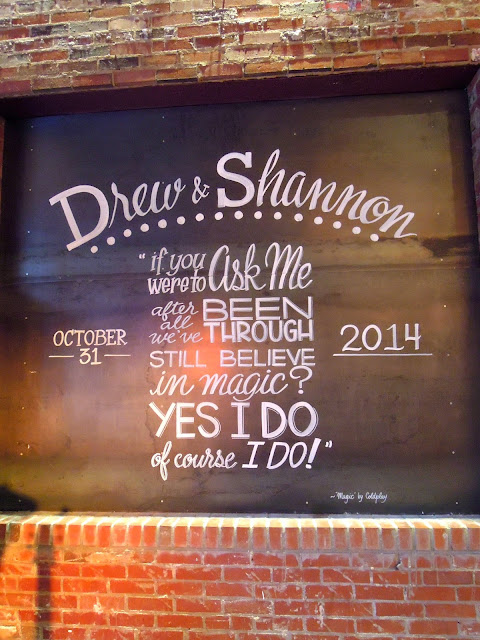 Drew & Shannon
"if you
were to Ask Me
after all we've BEEN
THROUGH
OCTOBER
31
2014
STILL BELIEVE
in magic?
YES I DO
of course I DO!"
~"Magic" by Coldplay